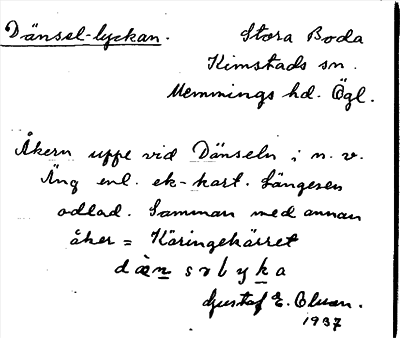 Dänsel-lyckan.
Stora Boda
Kimstads sn.
Memmings hd. Ögl.
Åkern uppe vid Dänseln i n. v.
Äng enl. ek-kart. Längesen
odlad. Samman med annan
åker = Käringekärret
dänsəlyka
Gustaf E. Olsson.
1937